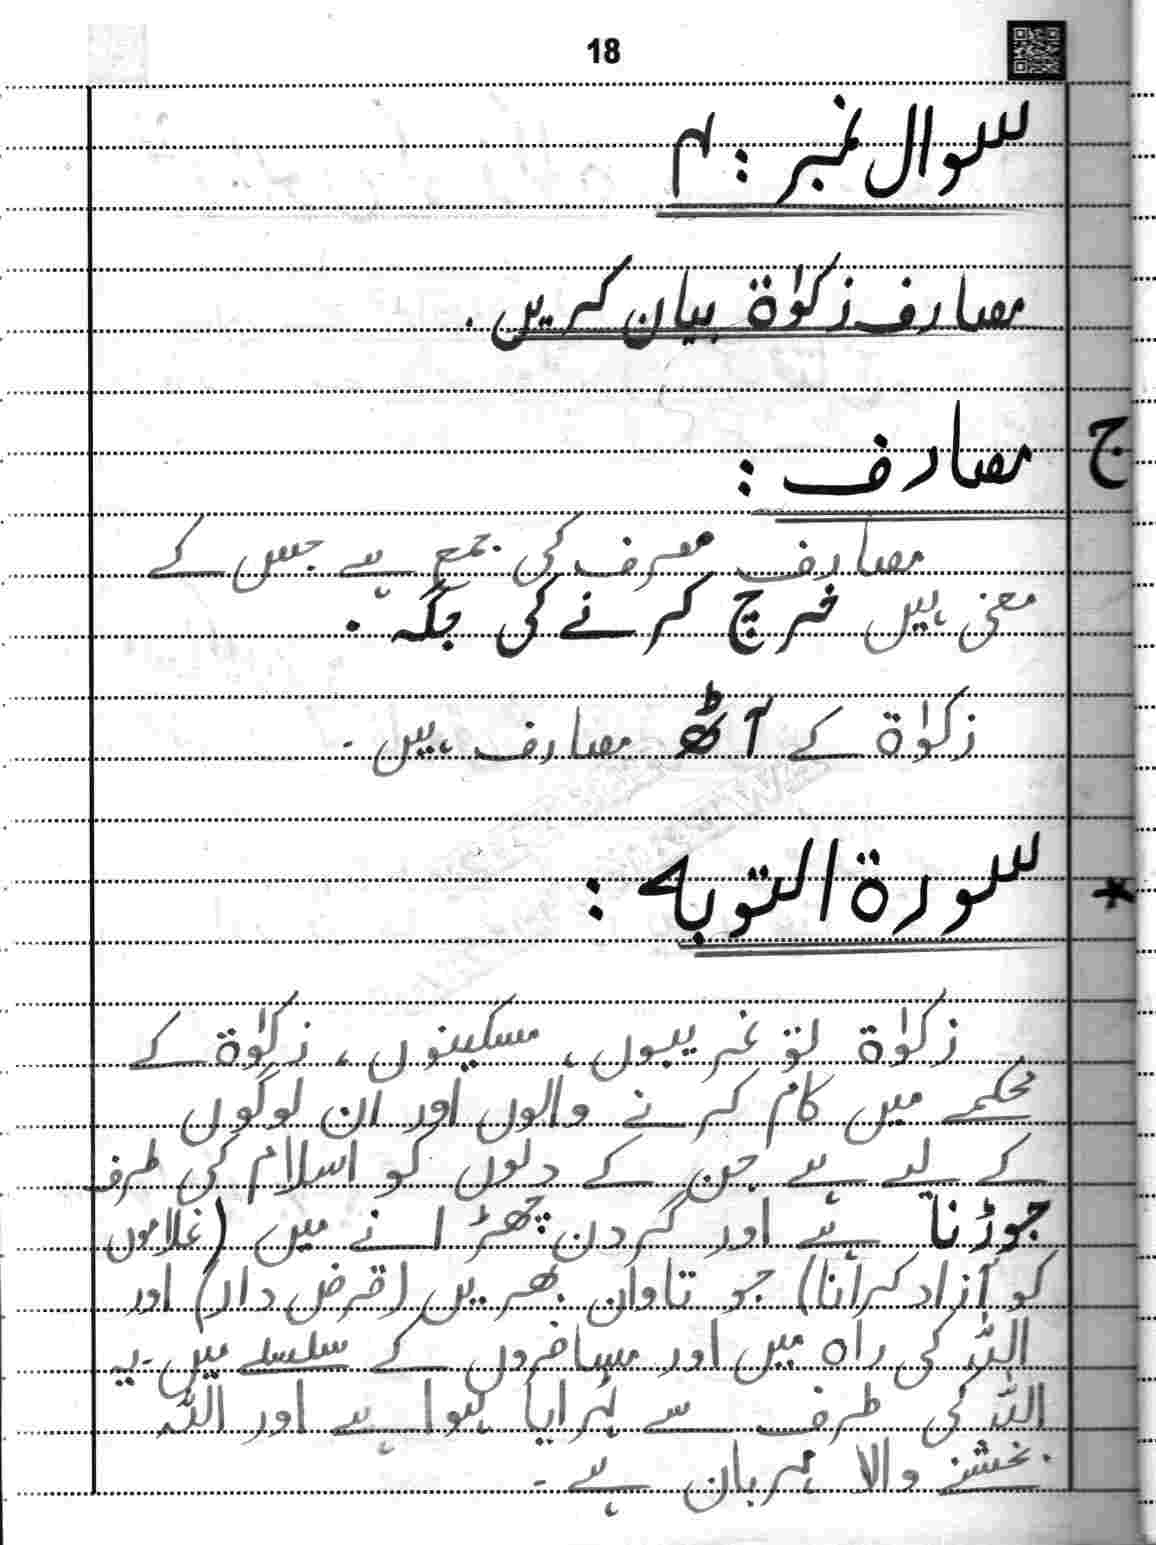 18
سوال نمبر : ۴
مصارف زکوٰۃ بیان کریں .
ج مصارف :
مصارف مصرف کی جمع ہے جس کے
معنی ہیں خرچ کرنے کی جگہ .
زکوٰۃ کے آٹھ مصارف ہیں -
* سورۃ التوبہ :
زکوٰۃ تو غریبوں ، مسکینوں ، زکوٰۃ کے
محکمے میں کام کرنے والوں اور ان لوگوں
کے لیے ہے جن کے دلوں کو اسلام کی طرف
جوڑنا ہے اور گردن چھڑانے میں (غلاموں
کو آزاد کرانا) جو تاوان بھریں (قرض دار) اور
اللہ کی راہ میں اور مسافروں کے سلسلے میں - یہ
اللہ کی طرف سے ٹہرایا ہوا ہے اور اللہ
بخشنے والا مہربان ہے -